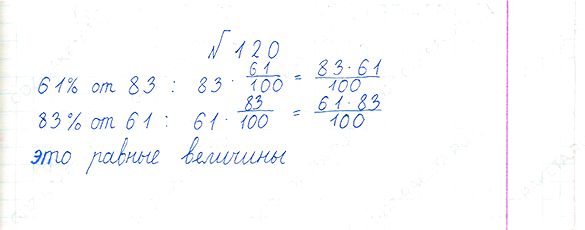 №120
61% от 83 : 83 · 61/100 = 83·61/100
83% от 61 : 61 · 83/100 = 61·83/100
это равные величины